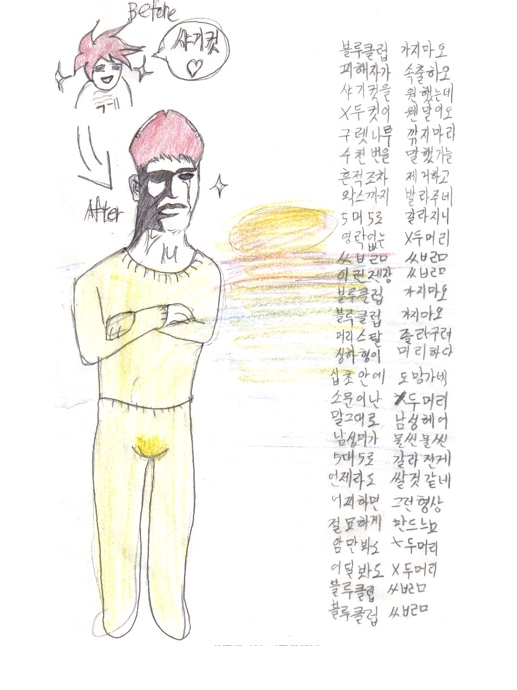 Before
샤기컷
After
블루클럽 가지마오
피해자가 속출하오
샤기컷을 원했는데
X두컷이 웬말이오
구렛나루 깎지마라
수천번을 말했거늘
흔적조차 제거하고
왁스까지 발라주네
5대5로 갈라지니
영락없는 X두머리
쓰브르므 쓰브르므
이런젠장 쓰브르므
블루클럽 가지마오
블루클럽 가지마오
머리스탈 졸라구려
상하형이 미리하다
십초안에 도망가네
소문이난 X두머리
말그대로 남성헤어
남성미가 물씬물씬
5대5로 갈라진게
언제라도 쌀것같네
어찌하면 그런형상
절묘하게 만드느뇨
암만봐도 X두머리
어딜봐도 X두머리
블루클럽 쓰브르므
블루클럽 쓰브르므